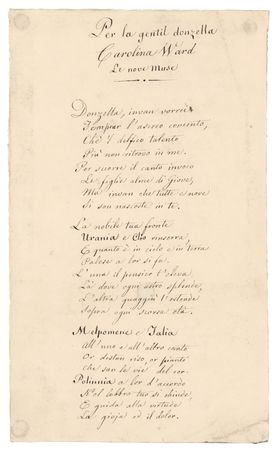 Per la gentil donzella
Carolina Ward
Le nove Muse
Donzella, invan vorrei
Temprar l'ascreo concento,
Chè 'l delfico talento
Più non ritrovo in me.
Per scorre il canto invoco
Le figlie alme di Giove,
Ma invan chè tutte e nove
Si son nascoste in te.
La nobile tua fronte
Urania e Clio rinserra,
E quanto è in cielo e in terra
Palese a lor si fa.
L'una il pensier t'eleva
Là dove ogni astro splende,
L'altra quaggiù l'estende
Sopra ogni scorsa età.
Melpomene e Talia
All'uno e all'altro canto
Or destan riso, or pianto
Che san le vie del cor.
Polinnia a lor d'accordo
Nel labbro tuo si chiude,
E guida alla virtude
La gioja ed il dolor.